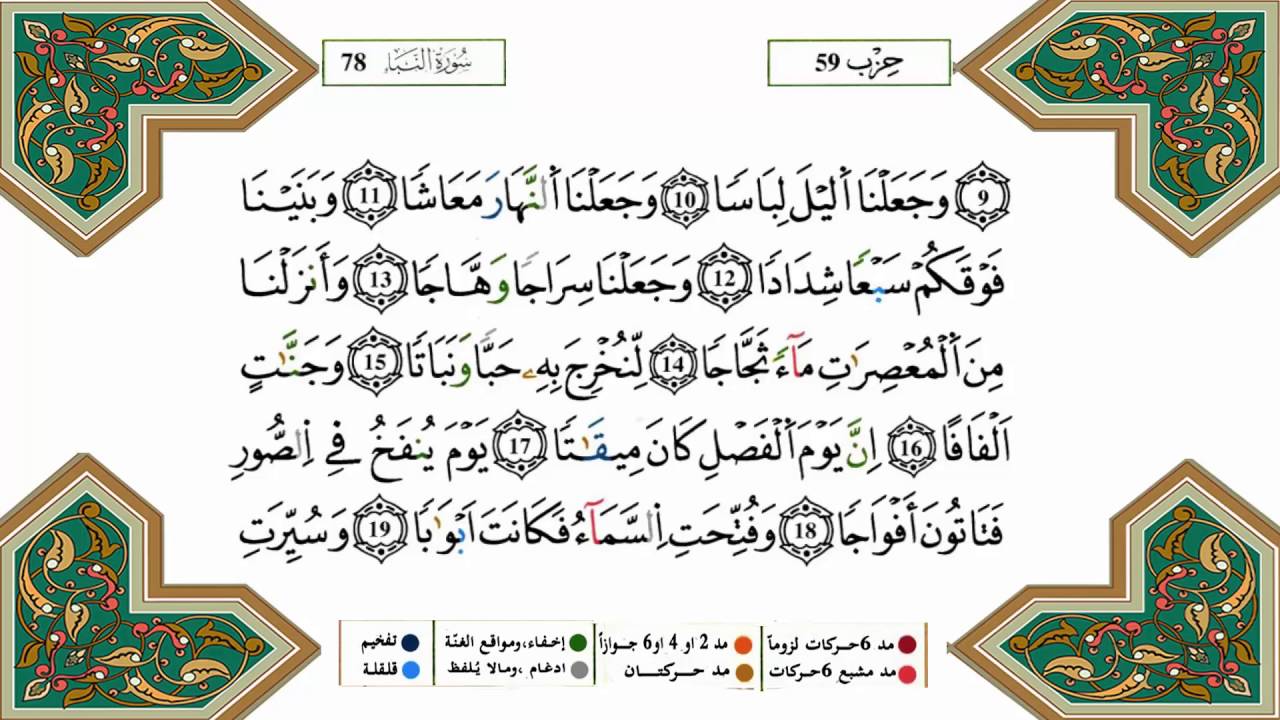 حِزْب 59
سُورَةُ النَّبَإِ 78
9 وَجَعَلْنَا اَ۬ليْلَ لِبَاساٗ 10 وَجَعَلْنَا اَ۬لنَّهَارَ مَعَاشاٗ 11 وَبَنَيْنَا
فَوْقَكُمْ سَبْعاٗ شِدَاداٗ 12 وَجَعَلْنَا سِرَاجاٗ وَهَّاجاٗ 13 وَأَنزَلْنَا
مِنَ اَ۬لْمُعْصِرَٰتِ مَآءٗ ثَجَّاجاٗ 14 لِّنُخْرِجَ بِهِۦ حَبّاٗ وَنَبَاتاٗ 15 وَجَنَّٰتٍ
اَلْفَافاً 16 اِنَّ يَوْمَ اَ۬لْفَصْلِ كَانَ مِيقَٰتاٗ 17 يَوْمَ يُنفَخُ فِے اِ۬لصُّورِ
فَتَاتُونَ أَفْوَاجاٗ 18 وَفُتِّحَتِ اِ۬لسَّمَآءُ فَكَانَتَ اَبْوَٰباٗ 19 وَسُيِّرَتِ
مد 6 حركات لزوماً مد 2 او 4 او 6 جوازاً إخفاء، ومواقع الغنّة تفخيم
مد مشبع 6 حركات مد حركتان ادغام، ومالا يُلفظ قلقلة